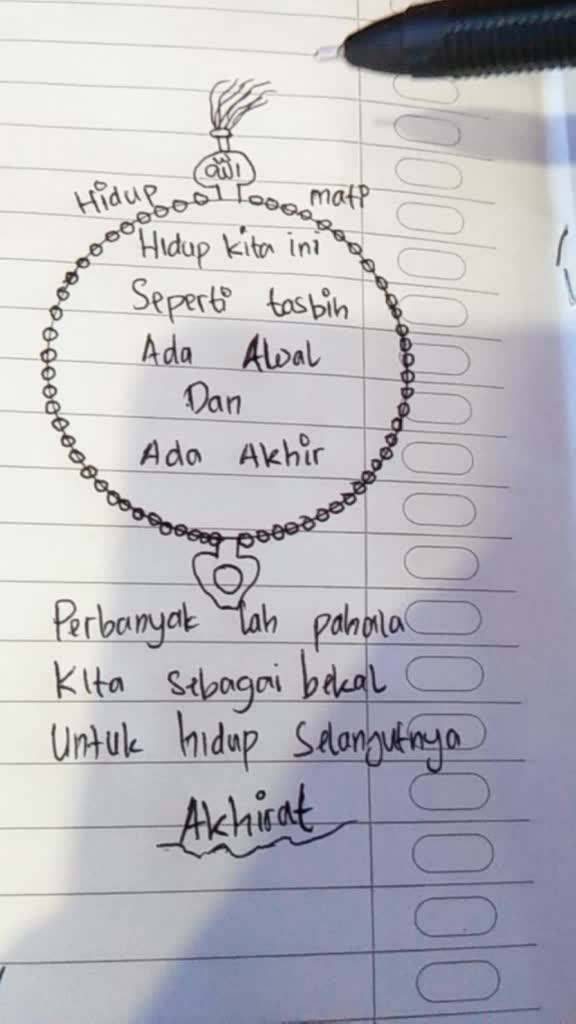 الله
Hidup mati
Hidup kita ini
Seperti tasbih
Ada Awal
Dan
Ada Akhir
Perbanyak lah pahala
Kita sebagai bekal
Untuk hidup Selanjutnya
Akhirat